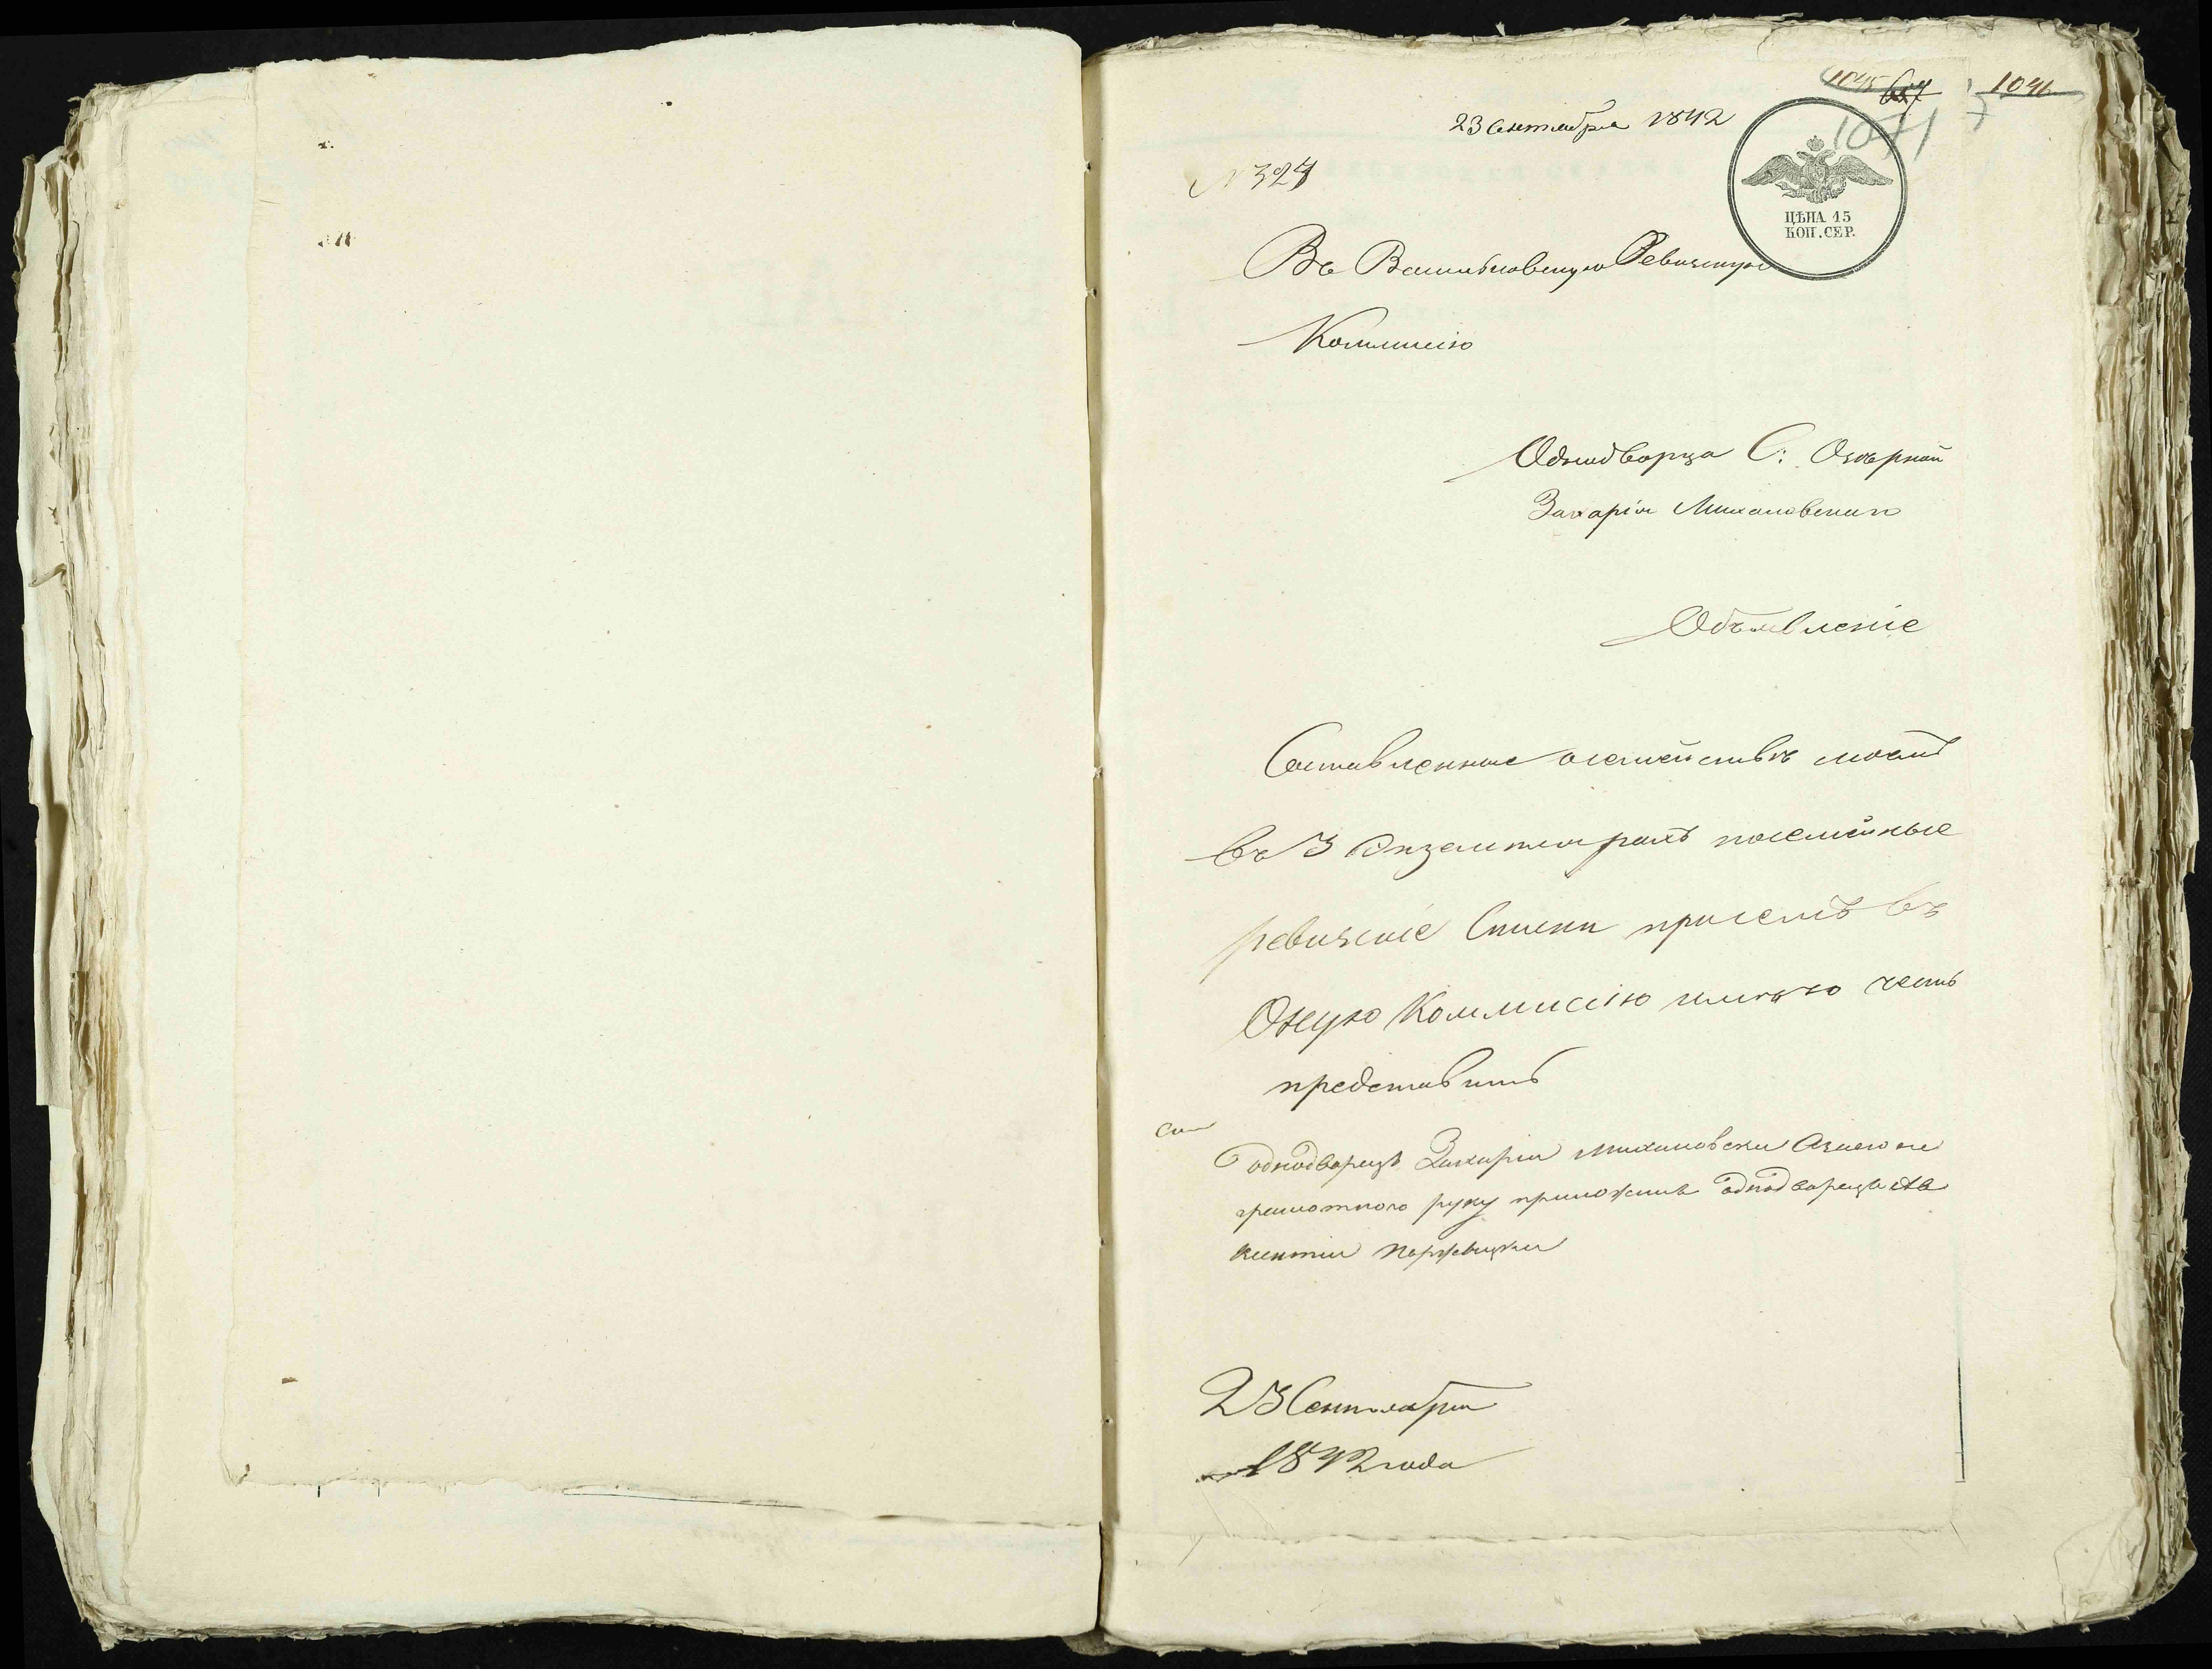 1045 657 1046
1071
23 Сентября 1842
N 327
ЦѢНА 15
КОП. СЕР.
Въ Васильковскую Ревизскую
Коммисію
Однодворца С: Озѣрной
Захарія Михаловскаго
Объявленіе
Составленные о семействѣ моемъ
въ 3 Экземплярахъ посемейные
ревизскіе Списки при семъ въ
Оную Коммиссію имѣю честь
представить
однодворецъ Захарій Михаловски а за него не
грамотного руку приложилъ однодворецъ
23 Сентября
1842 года